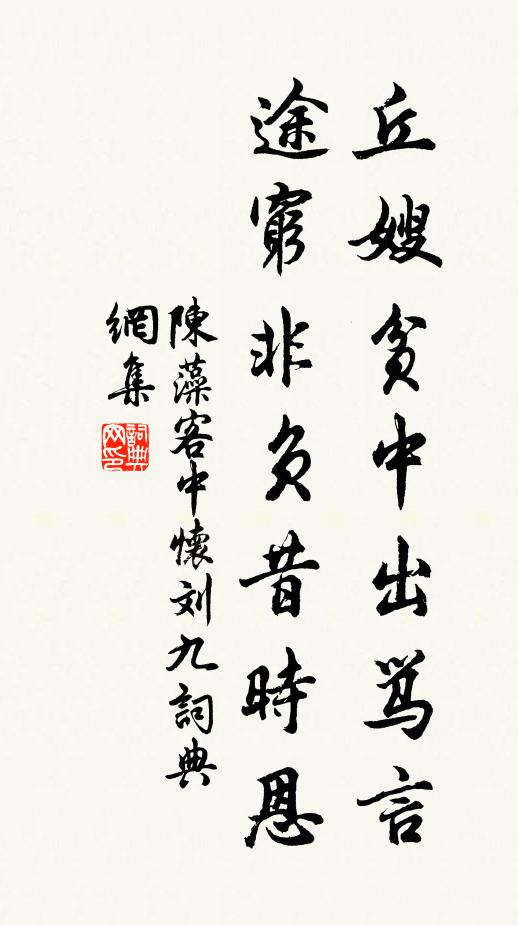 丘嫂貧中出骂言
途窮非負昔時恩
陳藻客中懷刘九詞典
網集
詞典
网印